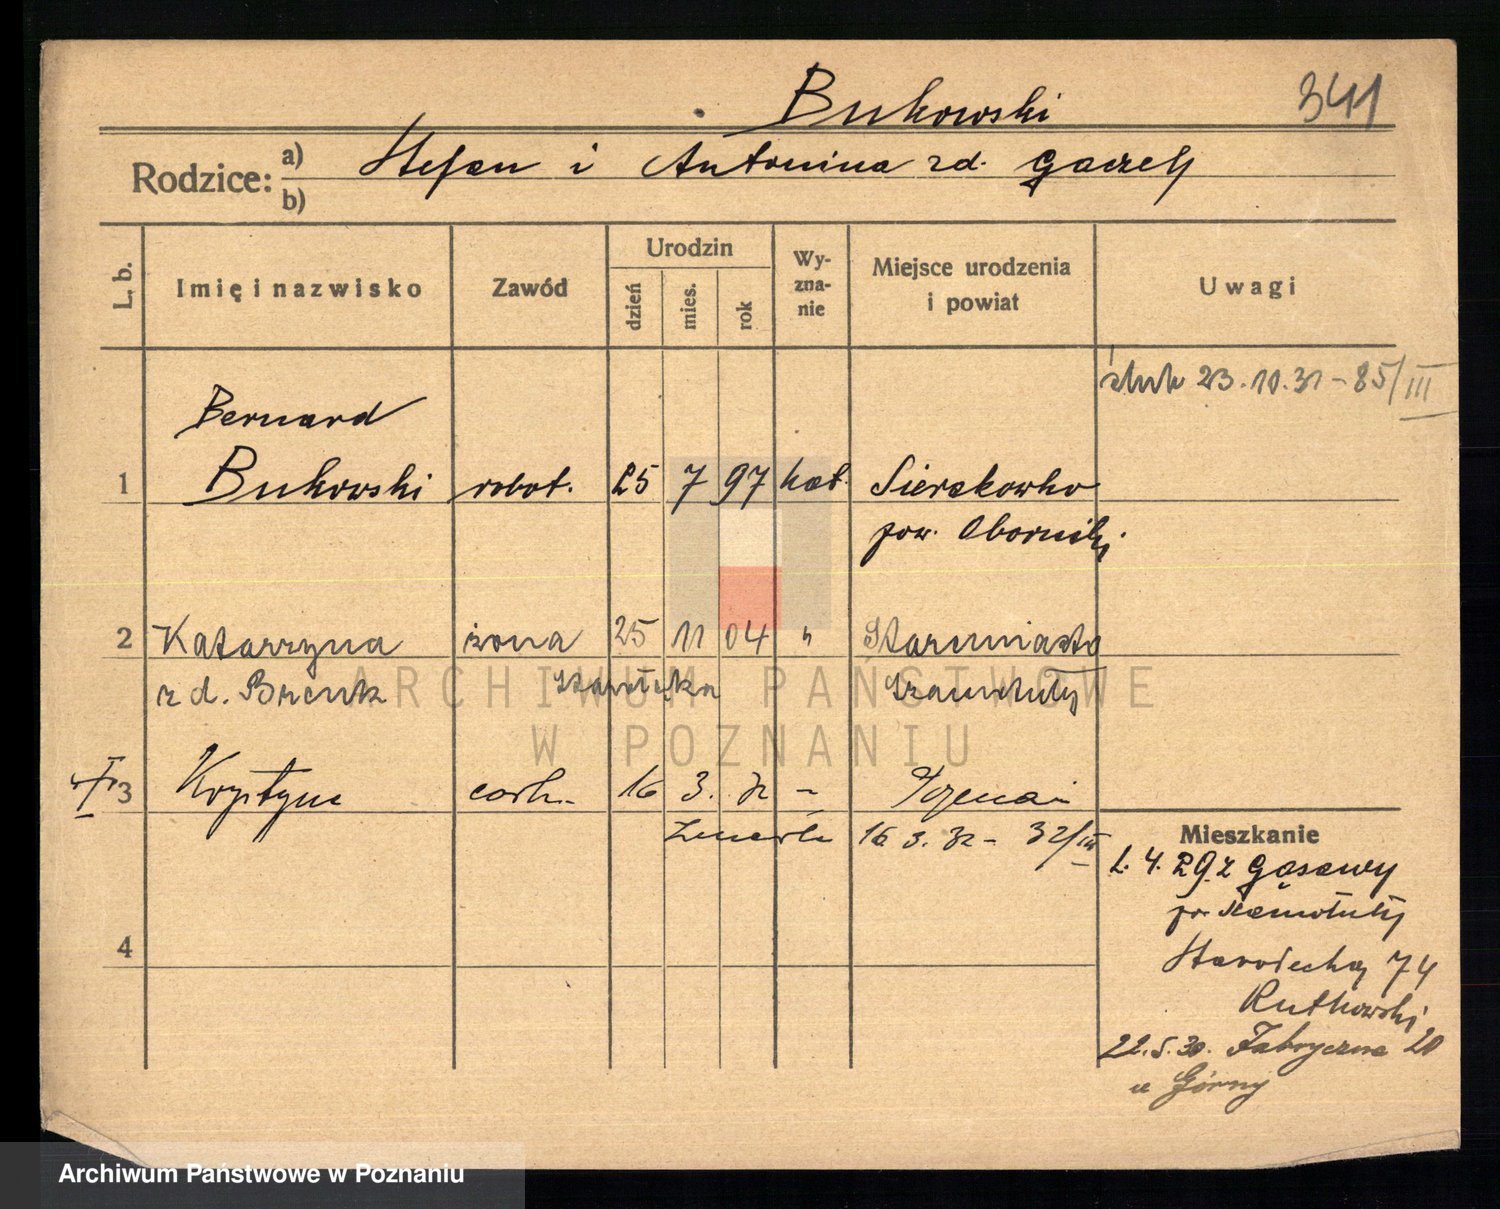 Bukowski 341
Rodzice: a) Stefan i Antonina zd. Gaczeł
b)
L. b. Imię i nazwisko Zawód Urodzin dzień mies. rok Wyzna-nie Miejsce urodzenia i powiat Uwagi
ślub 23.10.31 - 85/III
Bernard
1 Bukowski robot. 25 7 97 kat. Sierakowko
pow. Oborniki
2 Katarzyna żona 25 11 04 " Staremiasto
zd. Brenk Starołęka Szamotuły
3 Krystyna córk. 16 3. 32 - Poznań
Zmarła 16 3. 32 - 32/III
Mieszkanie
2. 4. 29 z Gąsawy
4
po. Szamotuły
Starołęcka 74
Rutkowski
22.5.30. Fabryczna 20
u Górny
ARCHIWUM PAŃSTWOWE
W POZNANIU
Archiwum Państwowe w Poznaniu